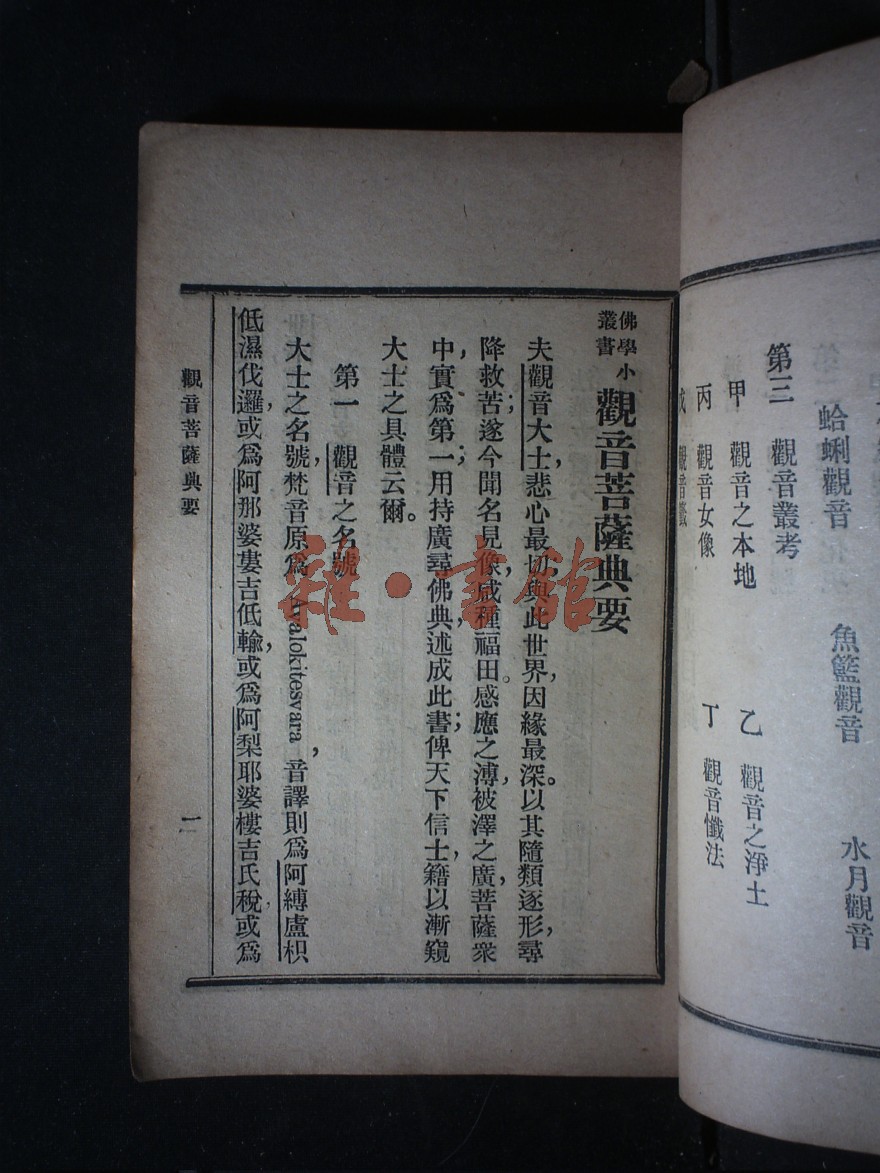 蛤蜊觀音 魚籃觀音 水月觀音
第三 觀音叢考
甲 觀音之本地 乙 觀音之淨土
丙 觀音女像 丁 觀音懺法
戊 觀音籤
佛學小叢書 觀音菩薩典要
夫觀音大士，悲心最切，與此世界，因緣最深。以其隨類逐形，尋
降救苦；遂今聞名見像，咸種福田。感應之溥，被澤之廣，菩薩衆
中，實爲第一；用持廣尋佛典，述成此書；俾天下信士，籍以漸窺
大士之具體云爾。
第一 觀音之名號
大士之名號，梵音原爲 Avalokitesvara，音譯則爲阿縛盧枳
低濕伐邏，或爲阿那婆婁吉低輸，或爲阿梨耶婆樓吉氏稅，或爲
觀音菩薩典要 一
雜·書館